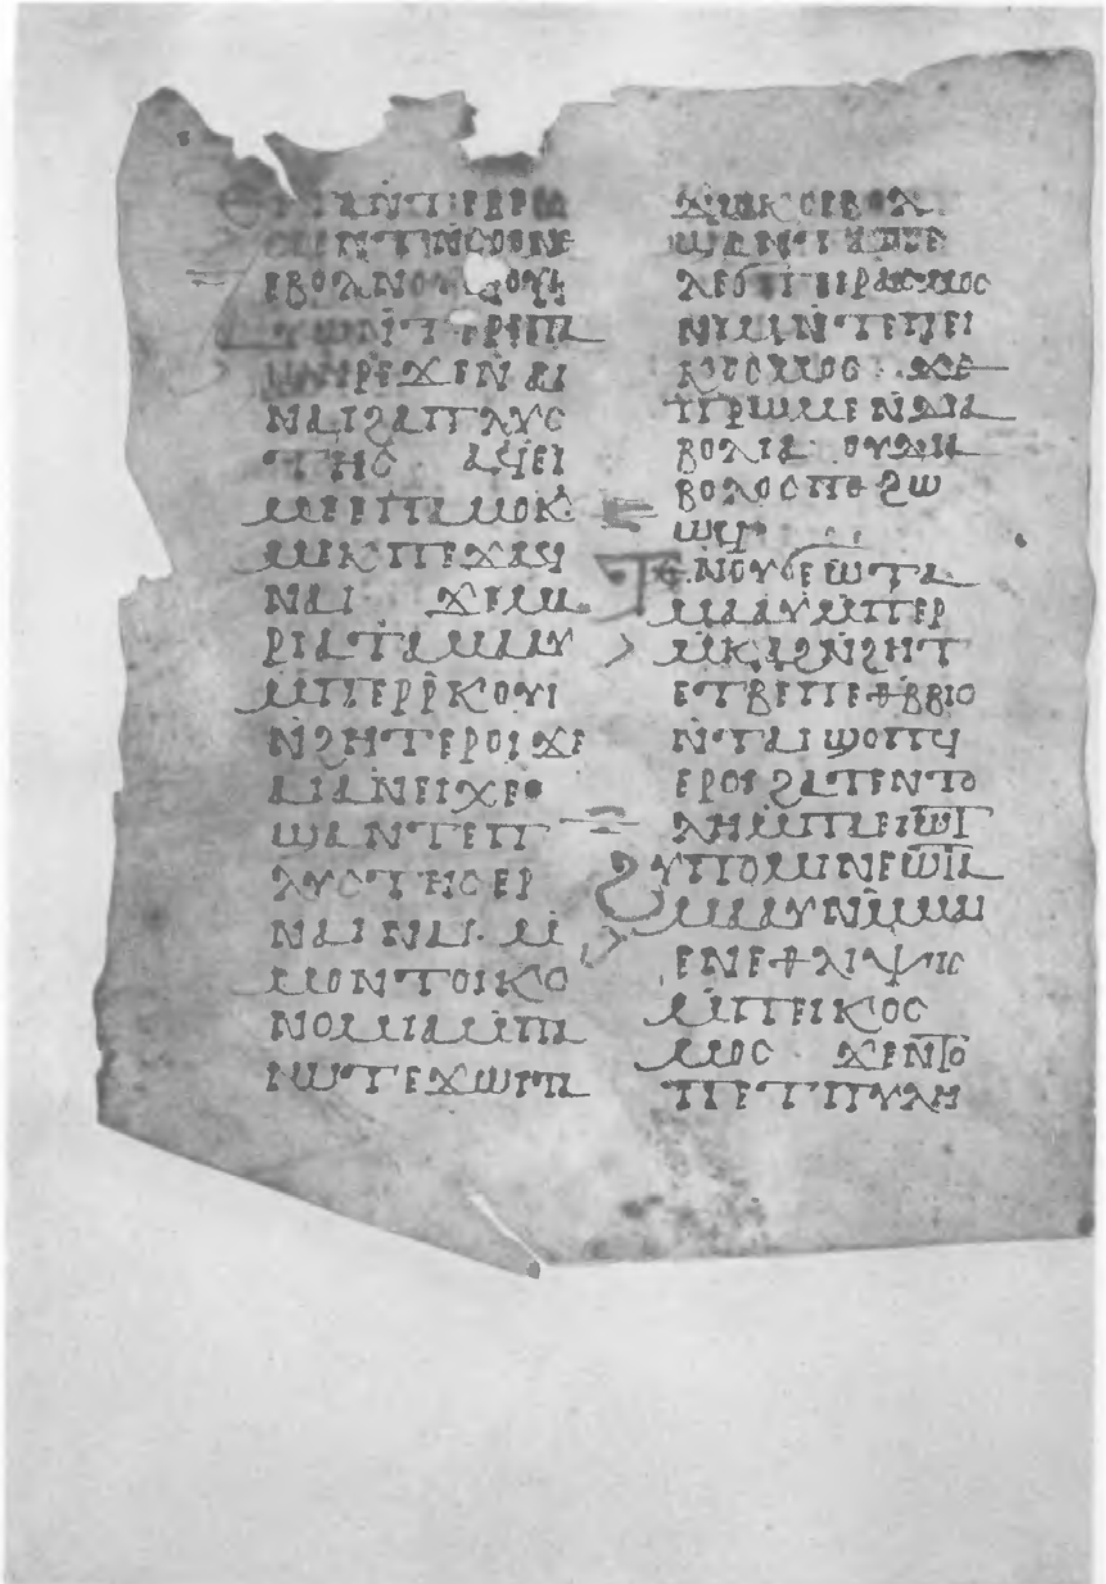 ⲉⲃⲟⲗ ⲛⲟⲩ
ϣⲏⲣⲉ ϫⲉⲛ ⲁⲓ
ⲛⲁⲓ ϩⲁⲡⲗⲩⲥ
ⲧⲏⲥ ⲁϥⲉⲓ
ⲙⲉ ⲉⲡⲁⲙⲟⲕ
ⲙⲉⲕ ⲡⲉϫⲁϥ
ⲛⲁⲓ ϫⲉ ⲙⲁ
ⲣⲓⲁ ⲧⲁⲙⲁⲁⲩ
ⲙ̇ⲡⲉⲣⲣ̇ⲕⲟⲩⲓ
ⲛ̇ϩⲏⲧ ⲉⲣⲟⲓ ϫⲉ
ⲁⲓⲁⲛⲉⲓⲭⲉ
ϣⲁⲛⲧⲉⲡ
ⲗⲩⲥⲧⲏⲥ ⲉⲣ
ⲛⲁⲓ ⲛⲁⲓ· ⲙ̇
ⲙⲟⲛ ⲧⲟⲓⲕⲟ
ⲛⲟⲙⲓⲁ ⲙ̇ⲡⲁ
ⲓⲱⲧ ⲉϫⲱⲓ ⲡⲁ
ϫⲱⲕ ⲉⲃⲟⲗ
ϣⲁⲛϯ
ⲡⲉⲓⲣⲁⲥⲙⲟⲥ
ⲛⲓⲙ ⲛ̇ⲧⲉ ⲡⲉⲓ
ⲕⲟⲥⲙⲟⲥ· ϫⲉ
ⲡⲣⲱⲙⲉ ⲛⲇⲓⲁ
ⲃⲟⲗⲓⲁ ⲟⲩⲇⲓⲁ
ⲃⲟⲗⲟⲥ ⲡⲉ ϩⲱ
ⲱϥ·
ⲧⲉⲛⲟⲩ ϭⲉ ⲱ ⲧⲁ
ⲙⲁⲁⲩ ⲙ̇ⲡⲉⲣ
ⲙ̇ⲕⲁϩ ⲛ̇ϩⲏⲧ
ⲉⲧⲃⲉ ⲡⲉⲑⲃⲃⲓⲟ
ⲛ̇ⲧⲁⲓϣⲟⲡϥ
ⲉⲣⲟⲓ ϩⲁ ⲧⲉⲛⲧⲟ
ⲗⲏ ⲙ̇ⲡⲁⲉⲓⲱⲧ
ϩⲩⲡⲟⲙⲓⲛⲉ ⲱ ⲧⲁ
ⲙⲁⲁⲩ ⲛⲙ̇ⲙⲁⲓ
ⲉⲛⲉⲑⲗⲓⲯⲓⲥ
ⲙ̇ⲡⲉⲓⲕⲟⲥ
ⲙⲟⲥ· ϫⲉ ⲛⲧⲟ
ⲡⲉ ⲧⲡⲩⲗⲏ